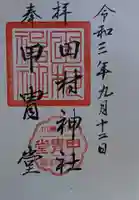 令和三年九月十二日
奉拝
田村神社
甲冑堂